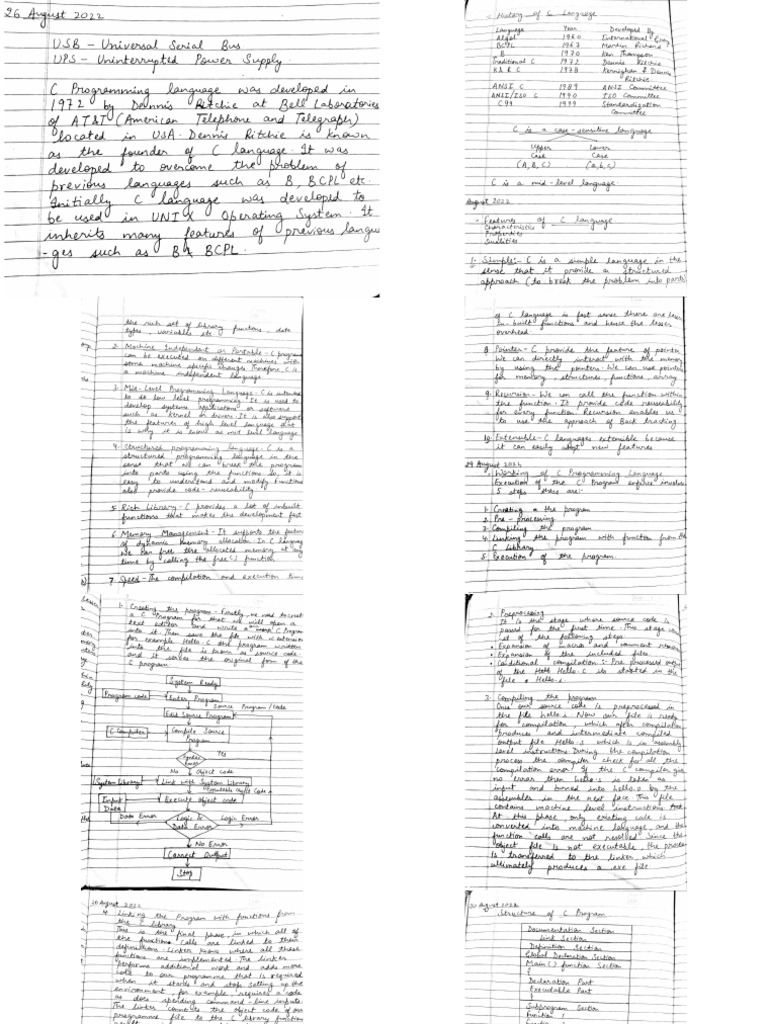 26 August 2022
USB - Universal Serial Bus
UPS - Uninterrupted Power Supply.
C Programming language was developed in
1972 by Dennis Ritchie at Bell Laboratories
of AT&T (American Telephone and Telegraph)
located in USA. Dennis Ritchie is known
as the founder of C language. It was
developed to overcome the problem of
previous languages such as B, BCPL etc.
Initially C language was developed to
be used in UNIX Operating System. It
inherits many features of previous langua
-ges such as B & BCPL.
History of C Language
Language Year Developed By
Algol 1960 International Group
BCPL 1967 Martin Richard
B 1970 Ken Thompson
Traditional C 1972 Dennis Ritchie
K & R C 1978 Kernighan & Dennis
Ritchie
ANSI C 1989 ANSI Committee
ANSI/ISO C 1990 ISO Committee
C99 1999 Standardization
Committee
C is a case-sensitive language
Upper Lower
Case Case
(A, B, C) (a, b, c)
C is a mid-level language
August 2022
- Features of C language
Characteristics
Properties
1. Simple:- C is a simple language in the
sense that it provide a structured
approach (to break the problem into parts)
the rich set of library functions, data
types, variables etc.
2. Machine Independent or Portable - C program
can be executed on different machines with
some machine specific changes. Therefore, C is
a machine independent language.
3. Mid-Level Programming Language - C is intended
to do low level programming. It is used to
develop systems applications or
such as kernel or driver. It is also support
the features of high level language that
is why it is known as mid level language
4. Structured programming language - C is a
structured programming language in the
sense that we can break the program
into parts using the functions. So, it is
easy to understand and modify. Functions
also provide code-reuseability.
5. Rich Library - C provides a lot of inbuilt
functions that makes the development fast
6. Memory Management - It supports the feature
of dynamic memory allocation. In C language
we can free the allocated memory at any
time by calling the free() function.
7. Speed - The compilation and execution time
of C language is fast since there are lesser
in-built functions and hence the lesser
overhead
8. Pointer - C provide the feature of pointer
We can directly interact with the memory
by using the pointers. We can use pointer
for memory, structures, functions, array
9. Recursion - We can call the function within
the function. It provide code reuseability
for every function. Recursion enables us
to use the approach of Back tracking
10. Extensible - C language extensible because
it can easily adopt new features
29 August 2022
Working of C Programming Language
Execution of the C Program involves
5 steps these are:-
1. Creating a the program
2. Pre-processing
3. Compiling the program
4. Linking the program with function from the
C library
5. Execution of the program.
1. Creating the program - Firstly, we need to create
a C Program for that we will open a
text editor and write a C Program
into it. Then save the file with .c extension
for example Hello.C the program written
into the file is known as source code
and it serves the original form of the
C program.
System Ready
Program code Enter Program
Source Program/Code
Edit Source Program
C Compiler Compile Source
Program
Yes
No Object code
System Library Link with System Library
Executable Object Code
Input Data Execute Object code
Data Error Logic & Data Error Login Error
No Error
Correct Output
Stop
2. Preprocessing
It is the stage where source code is
passed for the first time. This stage
of the following steps
• Expansion of macros and comment
• Expansion of the included files
• Conditional compilation :- Pre processed output
of the Hello.C is stored in the
file • Hello.i
3. Compiling the program
Once our source code is preprocessed in
the file hello.i Now our file is ready
for compilation which after compilation
produces and intermediate compiled
output file Hello.s which is in assembly
level instructions. During the compilation
process the compiler check for all the
compilation error if the C compiler give
no error then hello.s is taken as
input and turned into hello.o by the
assembler in the next face. This file
contains machine level instructions
At this phase only existing code is
converted into machine language and the
function calls are not resolved. Since the
object file is not executable the process
is transferred to the linker which
ultimately produces a exe file
30 August 2022
4. Linking the Program with functions from
the C library
This is the final phase, in which all of
the functions calls are linked to their
definitions. linker knows where all these
functions are implemented. The linker
performs additional work and adds more
code to our programme that is required
when it starts and stop setting up the
environment, for example, requires a code
as does sending command-line inputs.
The linker connects the object code of our
programme file to the C library function
Structure of C Program
Documentation Section
Link Section
Definition Section
Global Declaration Section
Main() function Section
{
Declaration Part
Executable Part
}
Subprogram Section
Function 1